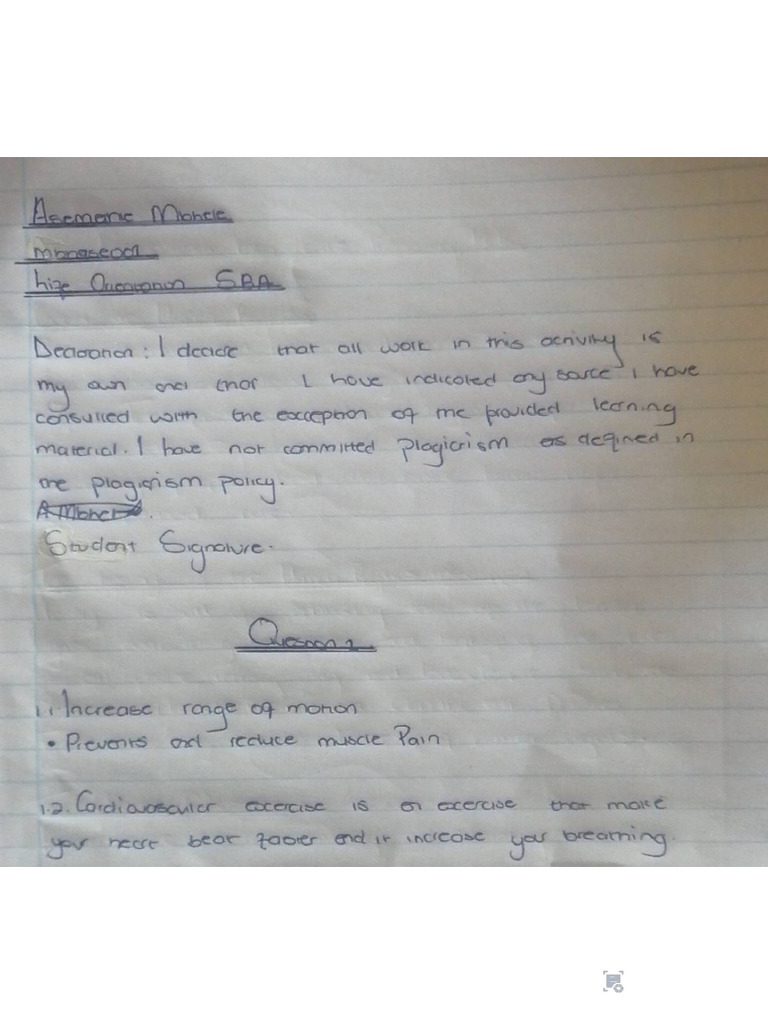 Life Orientation SBA
Declaration: I declare that all work in this activity is
my own and that I have indicated any source I have
consulted with the exception of the provided learning
material. I have not committed plagiarism as defined in
the plagiarism policy.
Student Signature.
Question 1
1.1 Increase range of motion
• Prevents and reduce muscle Pain
1.2. Cardiovascular excercise is an excercise that make
your heart beat faster and it increase your breathing.